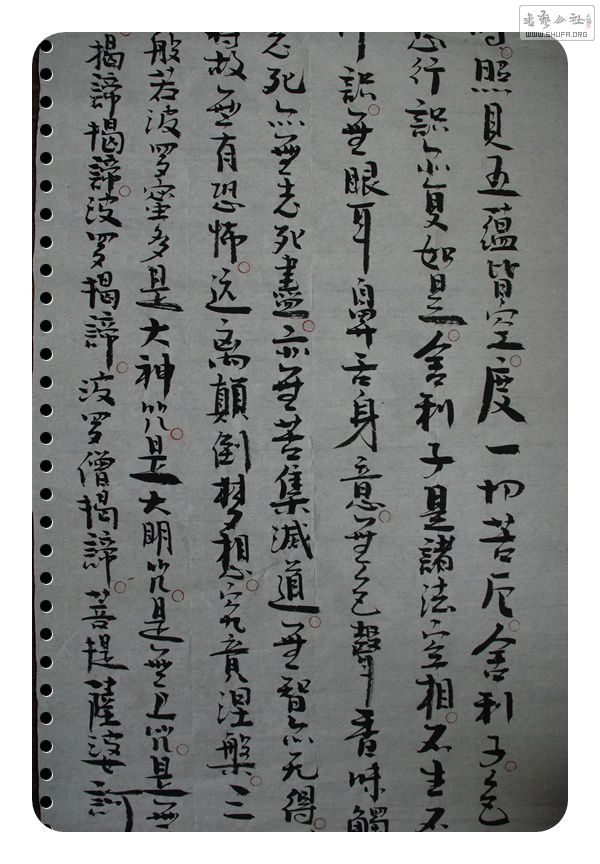 書藝公社
WWW.SHUFA.ORG
時照見五蘊皆空度一切苦厄舍利子色
行識亦复如是舍利子是諸法空相不生不
行識無眼耳鼻舌身意無色聲香味觸
老死亦無老死盡亦無苦集滅道無智亦无得
故無有恐怖远离顛倒梦想究竟涅槃三
般若波罗蜜多是大神咒是大明咒是無上咒是無
揭諦揭諦波罗揭諦波罗僧揭諦菩提薩婆訶